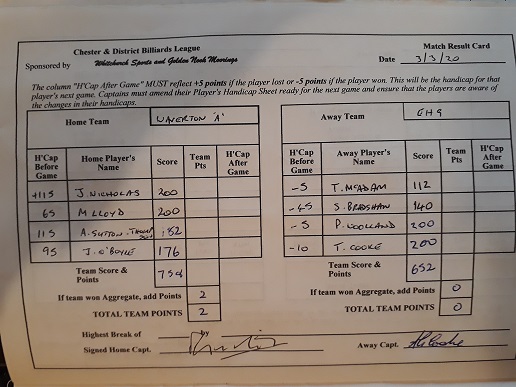 Chester & District Billiards League
Match Result Card
Sponsored by Whitchurch Sports and Golden Nook Moorings
Date 3/3/20
The column "H'Cap After Game" MUST reflect +5 points if the player lost or -5 points if the player won. This will be the handicap for that
player's next game. Captains must amend their Player's Handicap Sheet ready for the next game and ensure that the players are aware of
the changes in their handicaps.
Home Team WAVERTON 'A'
H'Cap Before Game Home Player's Name Score Team Pts H'Cap After Game
+115 J. NICHOLAS 200
65 M LLOYD 200
115 A. SUTTON-THOMPSON 182
95 J. O'BOYLE 176
Team Score & Points 758
If team won Aggregate, add Points 2
TOTAL TEAM POINTS 2
Highest Break of by
Signed Home Capt.
Away Team EH9
H'Cap Before Game Away Player's Name Score Team Pts H'Cap After Game
-5 T. McADAM 112
-45 S. BRADSHAW 140
-5 P. WOOLLAND 200
-10 T. COOKE 200
Team Score & Points 652
If team won Aggregate, add Points 0
TOTAL TEAM POINTS 0
Away Capt.